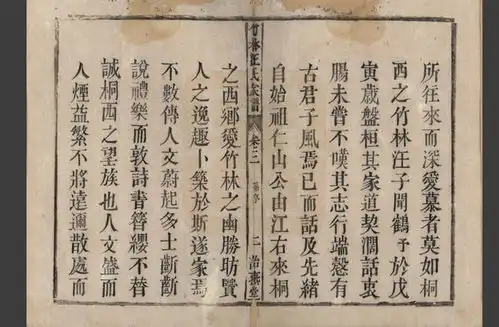 所往來而深愛慕者莫如桐
西之竹林汪子聞鶴予於戊
寅歲盤桓其家道契濶話衷
腸未嘗不嘆其志行端慤有
古君子風焉已而話及先緒
自始祖仁山公由江右來桐
竹林汪氏宗譜
卷之二
二
之西鄉愛竹林之幽勝昉賢
人之逸趣卜築於斯遂家焉
不數傳人文蔚起多士斷斷
說禮樂而敦詩書簪纓不替
誠桐西之望族也人文盛而
人煙益繁不將遠邇散處而